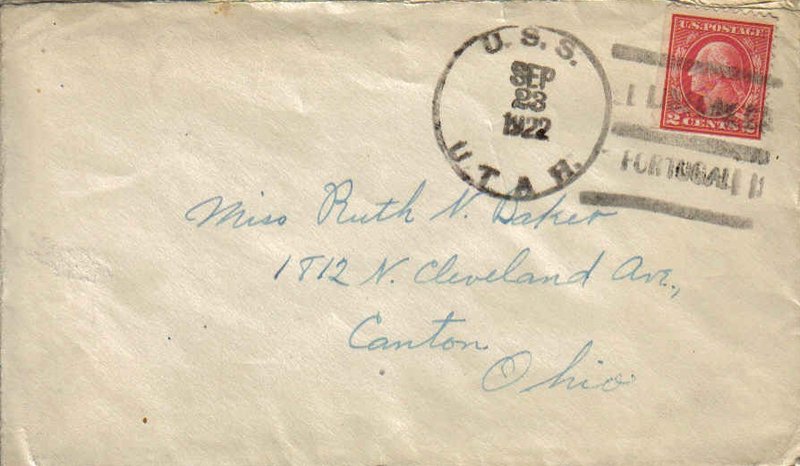 U.S. POSTAGE
2 CENTS 2
U. S. S.
SEP
23
1922
U.T A H.
PORTUGAL
Miss Ruth N. Baker
1812 N. Cleveland Ave.,
Canton
Ohio